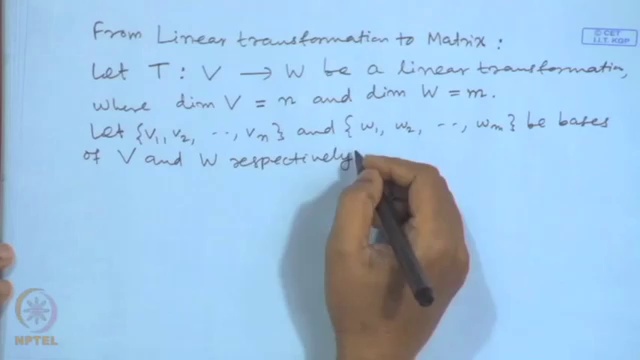 © CET
I.I.T. KGP
From Linear transformation to Matrix :
Let T : V → W be a linear transformation,
where dim V = n and dim W = m.
Let {v₁, v₂, ..., vₙ} and {w₁, w₂, ..., wₘ} be bases
of V and W respectively
NPTEL